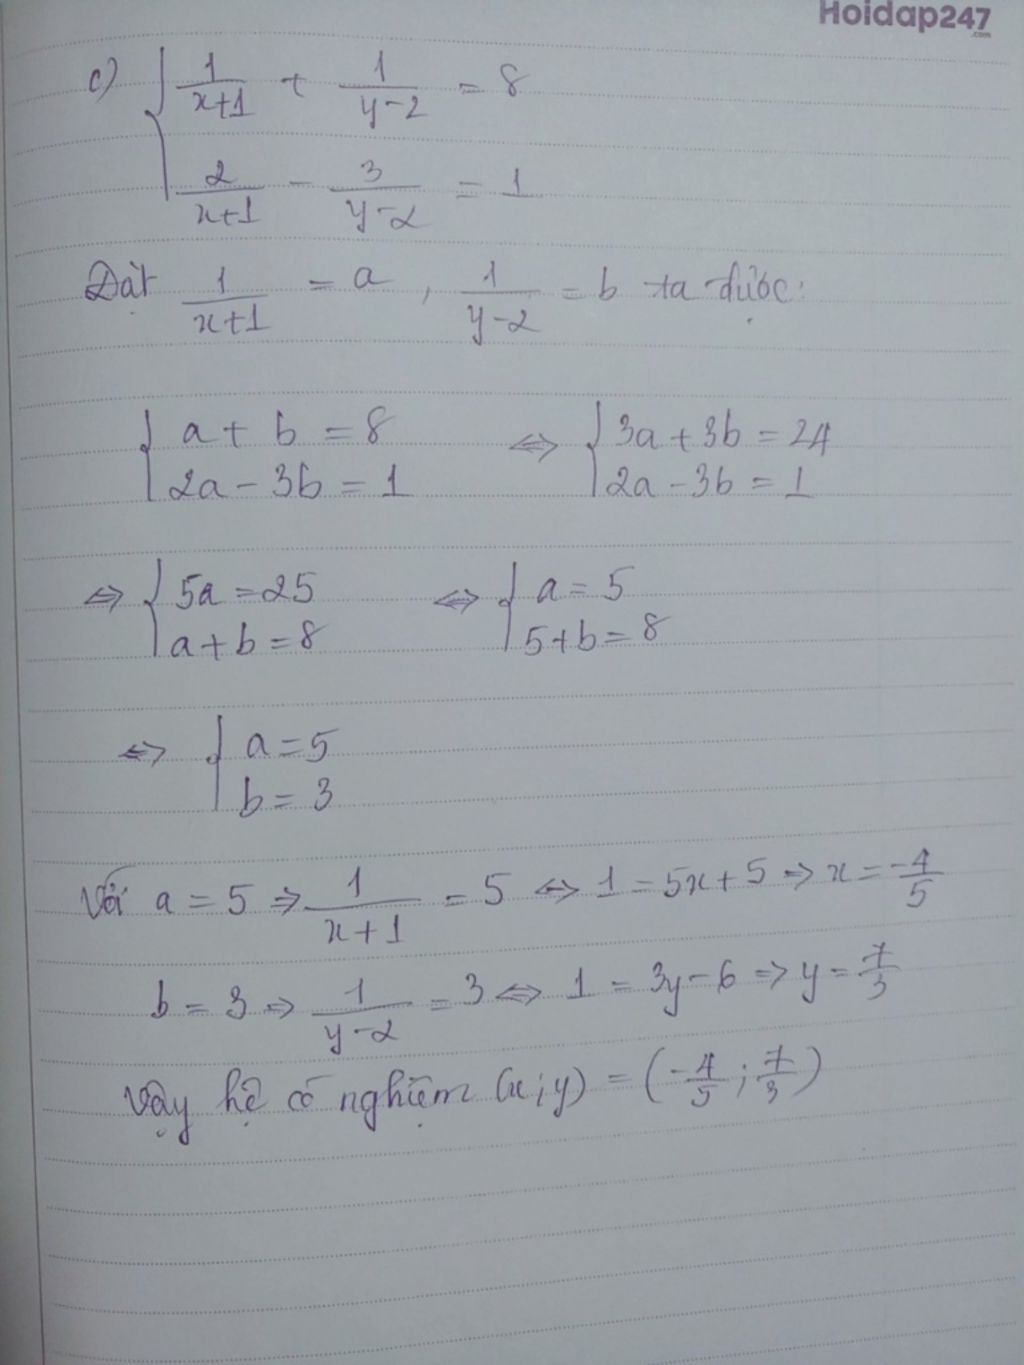 Hoidap247
.com
c) { 1/(x+1) + 1/(y-2) = 8
2/(x+1) - 3/(y-2) = 1
Đặt 1/(x+1) = a , 1/(y-2) = b ta được:
{ a + b = 8 <=> { 3a + 3b = 24
2a - 3b = 1 2a - 3b = 1
<=> { 5a = 25 <=> { a = 5
a + b = 8 5 + b = 8
<=> { a = 5
b = 3
Với a = 5 => 1/(x+1) = 5 <=> 1 = 5x + 5 => x = -4/5
b = 3 => 1/(y-2) = 3 <=> 1 = 3y - 6 => y = 7/3
Vậy hệ có nghiệm (x;y) = (-4/5 ; 7/3)